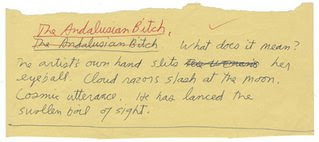 The Andalusian Bitch,
The Andalusian Bitch What does it mean?
The artist's own hand slits her
eyeball. Cloud razors slash at the moon.
Cosmic utterance. He has lanced the
swollen boil of sight.